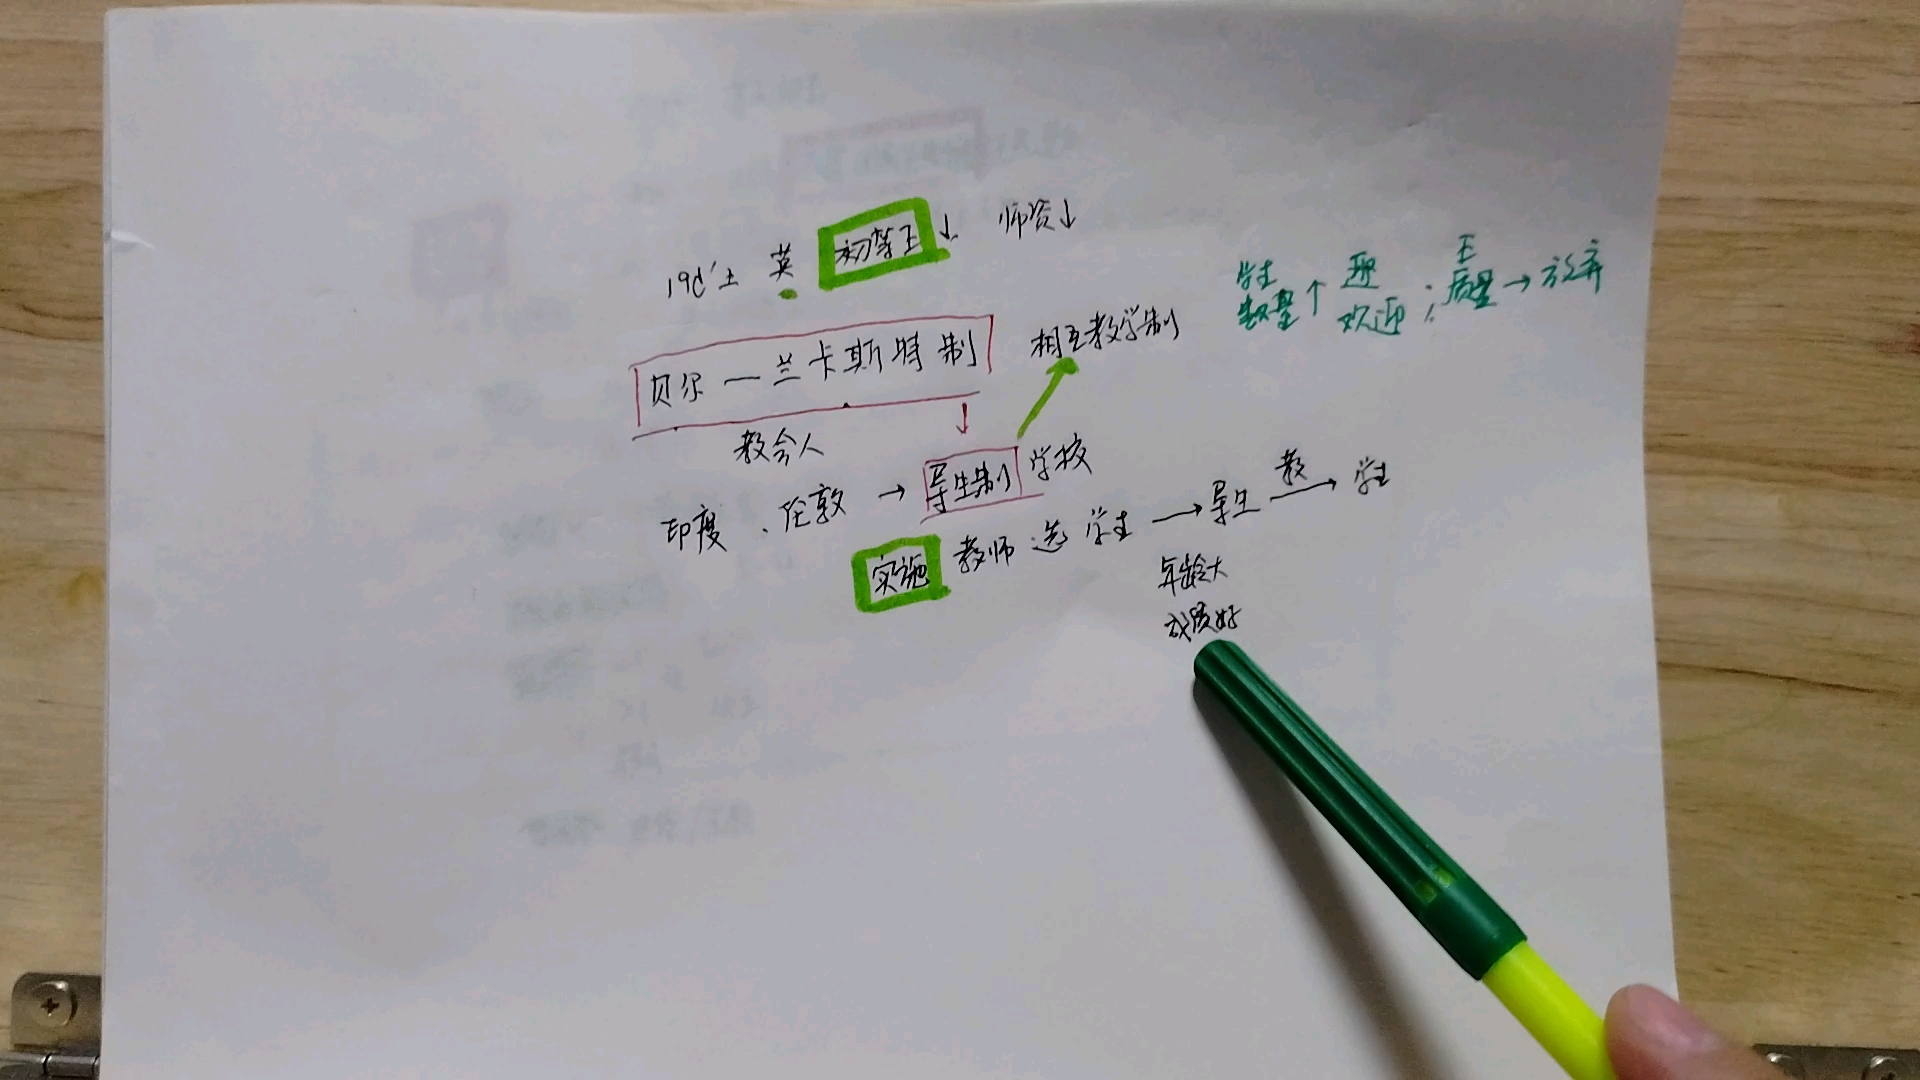 19c'上 英 初等E↓ 师资↓
学生数量↑ 受欢迎；E质量→放弃
贝尔一兰卡斯特制
相互教学制
教会人
印度、伦敦→导生制学校
实施 教师选学生→导生 教→学生
年龄大
成绩好